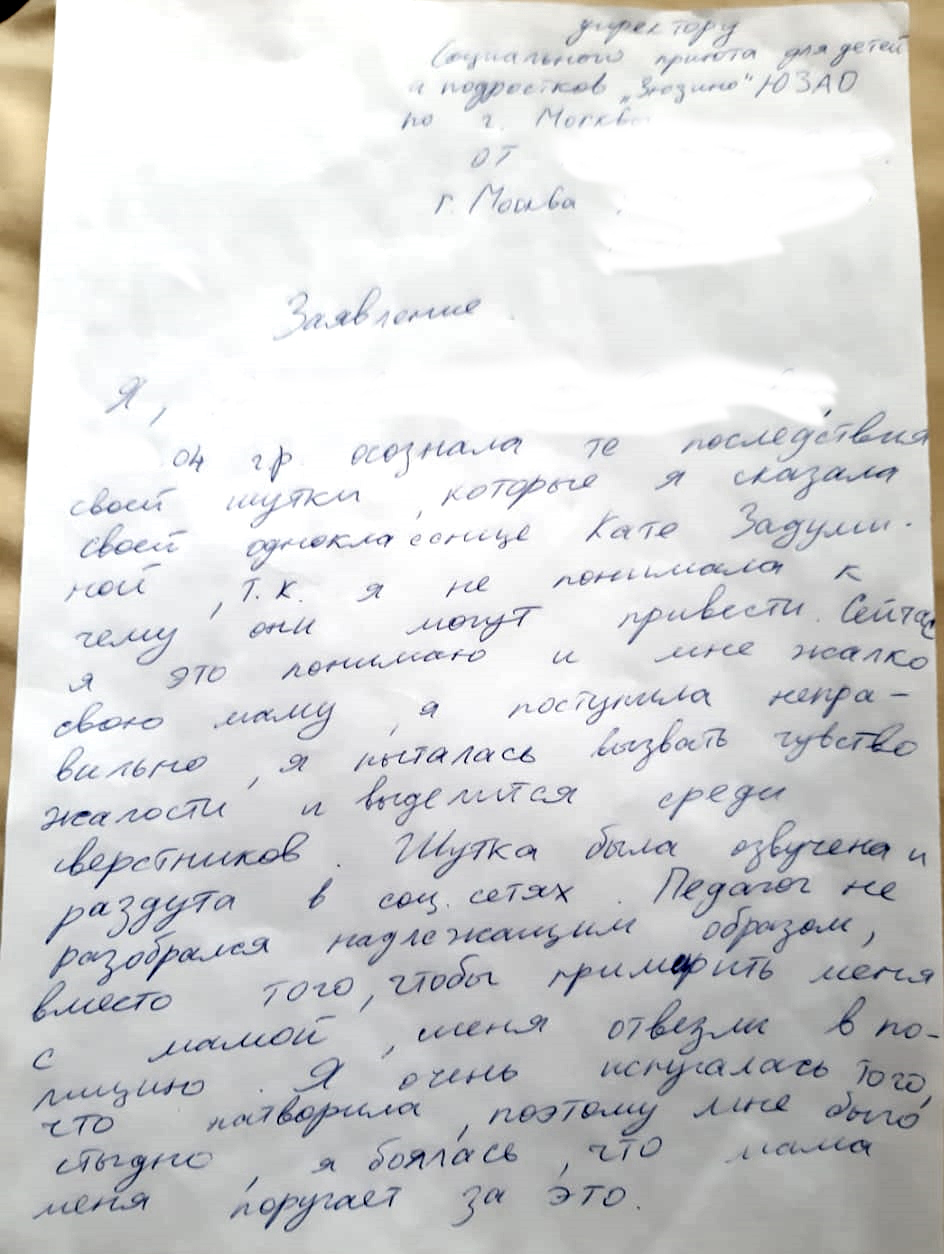 директору
Социального приюта для детей
и подростков „Зюзино" ЮЗАО
по г. Москве
от
г. Москва
Заявление.
Я,
04 г.р. осознала те последствия
своей шутки, которые я сказала
своей однокласснице Кате Задуми-
ной, т.к. я не понимала к
чему они могут привести. Сейчас
я это понимаю и мне жалко
свою маму, я поступила непра-
вильно, я пыталась вызвать чувство
жалости и выделится среди
сверстников. Шутка была озвучена и
раздута в соц. сетях. Педагог не
разобрался надлежащим образом,
вместо того, чтобы примирить меня
с мамой, меня отвезли в по-
лицию. Я очень испугалась того,
что натворила, поэтому мне было
стыдно, я боялась, что мама
меня поругает за это.